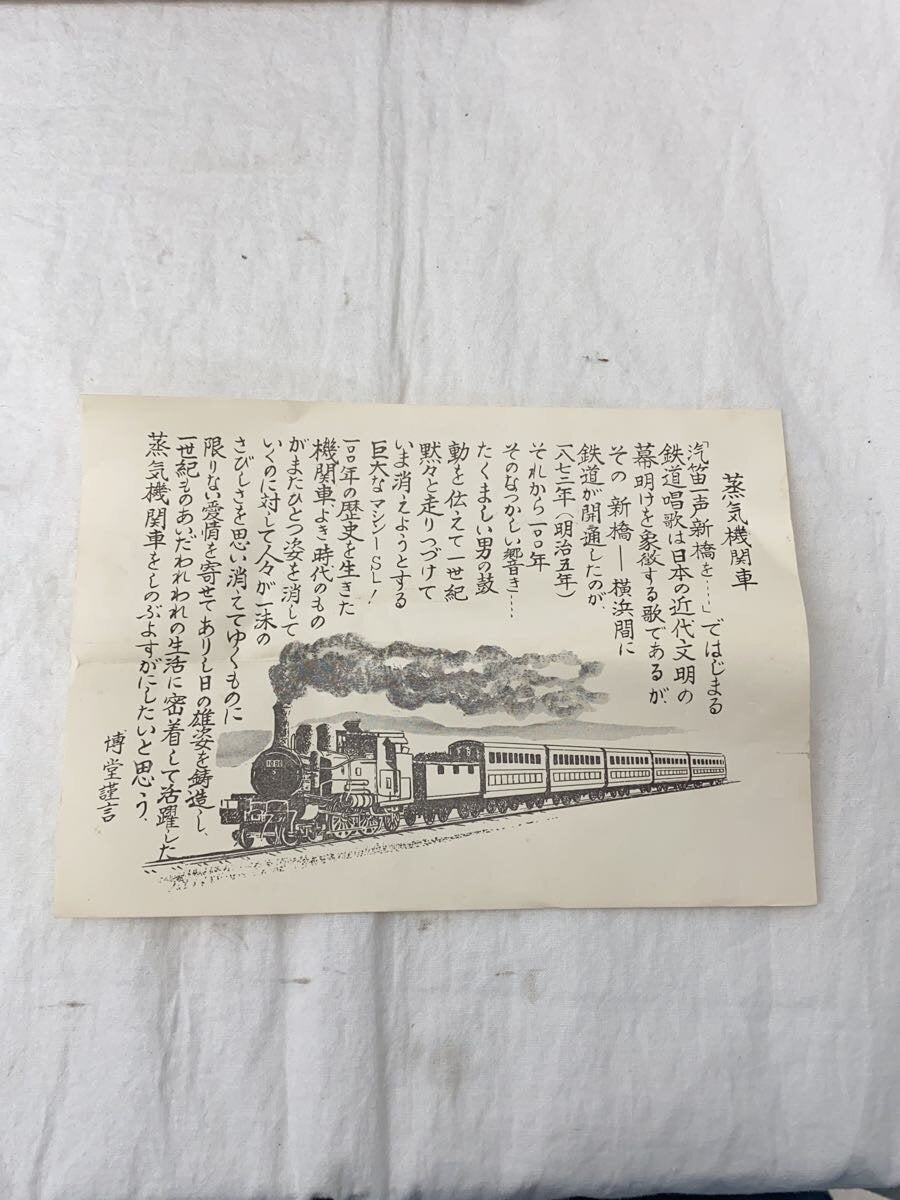 蒸気機関車
「汽笛一声新橋を…」ではじまる
鉄道唱歌は日本の近代文明の
幕明けを象徴する歌であるが、
その 新橋―横浜間に
鉄道が開通したのが、
一八七三年(明治五年)
それから一〇〇年
そのなつかしい響き…
たくましい男の鼓
動を伝えて一世紀
黙々と走りつづけて
いま消えようとする
巨大なマシンーSL!
一〇〇年の歴史を生きた
機関車よき時代のもの
がまたひとつ姿を消して
いくのに対して人々が一沫の
さびしさを思い消えてゆくものに
限りない愛情を寄せてありし日の雄姿を鋳造し、
一世紀ものあいだわれわれの生活に密着して活躍した
蒸気機関車をしのぶよすがにしたいと思う。
博堂謹言
1081